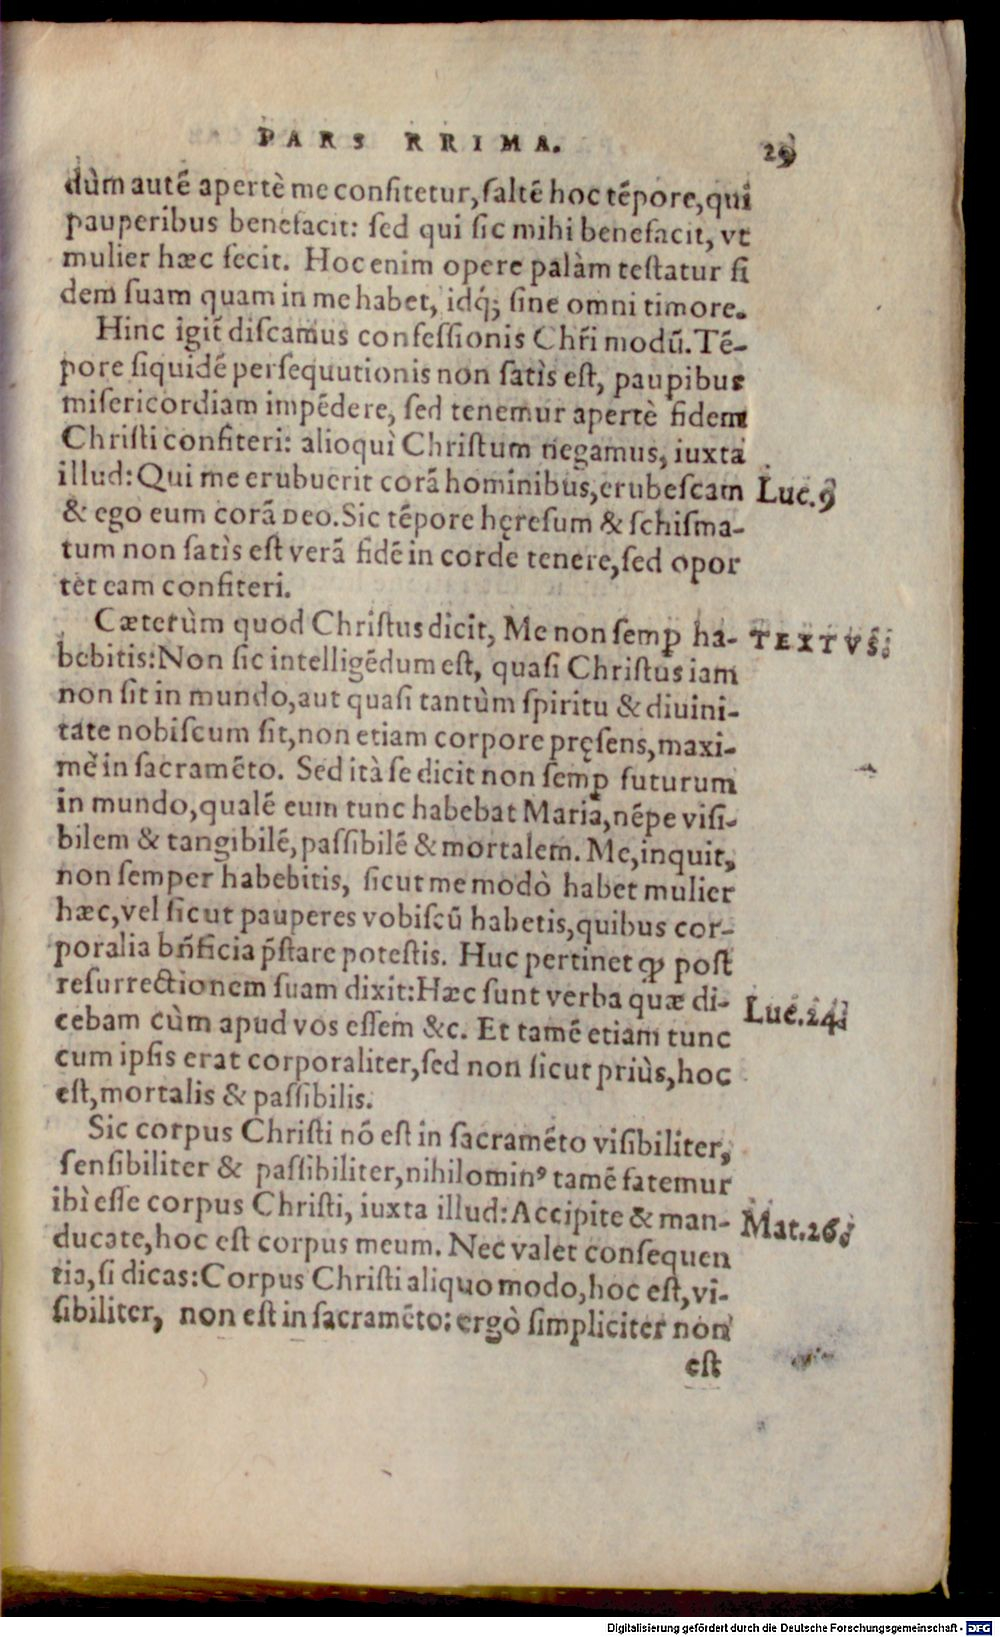 PARS RRIMA. 29
dùm autē apertè me confitetur, saltē hoc tēpore, qui
pauperibus benefacit: sed qui sic mihi benefacit, vt
mulier hæc fecit. Hoc enim opere palàm testatur fi
dem suam quam in me habet, idq́; sine omni timore.
Hinc igit̃ discamus confessionis Chr̃i modū. Tē-
pore siquidē persequutionis non satìs est, paupibus
misericordiam impēdere, sed tenemur apertè fidem
Christi confiteri: alioquì Christum negamus, iuxta
illud: Qui me erubuerit corā hominibus, erubescam
Luc. 9
& ego eum corā DEO. Sic tēpore hęresum & schisma-
tum non satìs est verā fidē in corde tenere, sed opor
tet eam confiteri.
Cæterùm quod Christus dicit, Me non semꝑ ha-
TEXTVS.
bebitis: Non sic intelligēdum est, quasi Christus iam
non sit in mundo, aut quasi tantùm spiritu & diuini-
tate nobiscum sit, non etiam corpore pręsens, maxi-
mè in sacramēto. Sed ità se dicit non semꝑ futurum
in mundo, qualē eum tunc habebat Maria, nēpe visi-
bilem & tangibilē, passibilē & mortalem. Me, inquit,
non semper habebitis, sicut me modò habet mulier
hæc, vel sicut pauperes vobiscū habetis, quibus cor-
poralia bñficia p̃stare potestis. Huc pertinet ꝙ post
resurrectionem suam dixit: Hæc sunt verba quæ di-
Luc. 24.
cebam cùm apud vos essem &c. Et tamē etiam tunc
cum ipsis erat corporaliter, sed non sicut priùs, hoc
est, mortalis & passibilis.
Sic corpus Christi nō est in sacramēto visibiliter,
sensibiliter & passibiliter, nihilominꝰ tamē fatemur
ibì esse corpus Christi, iuxta illud: Accipite & man-
Mat. 26.
ducate, hoc est corpus meum. Nec valet consequen
tia, si dicas: Corpus Christi aliquo modo, hoc est, vi-
sibiliter, non est in sacramēto: ergò simpliciter non
est
Digitalisierung gefördert durch die Deutsche Forschungsgemeinschaft - DFG